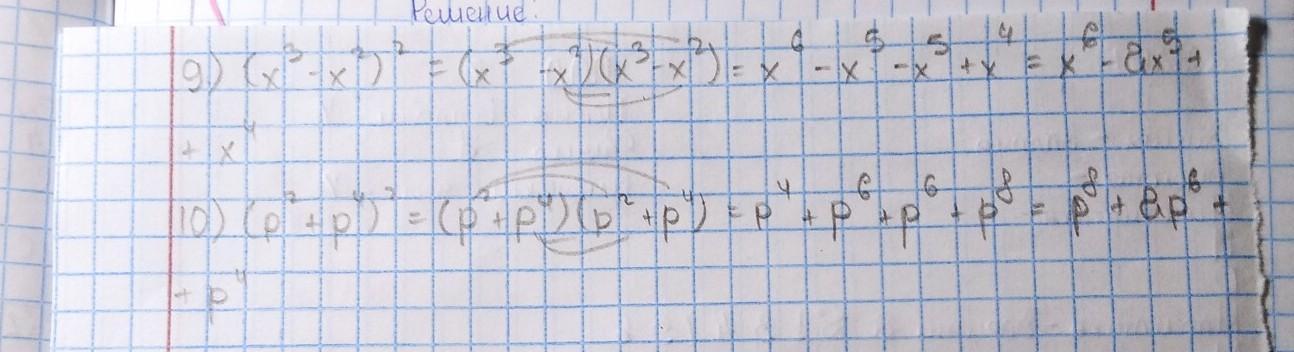 Решение:
9) (x³ - x²)² = (x³ - x²)(x³ - x²) = x⁶ - x⁵ - x⁵ + x⁴ = x⁶ - 2x⁵ +
+ x⁴
10) (p² + p⁴)² = (p² + p⁴)(p² + p⁴) = p⁴ + p⁶ + p⁶ + p⁸ = p⁸ + 2p⁶ +
+ p⁴